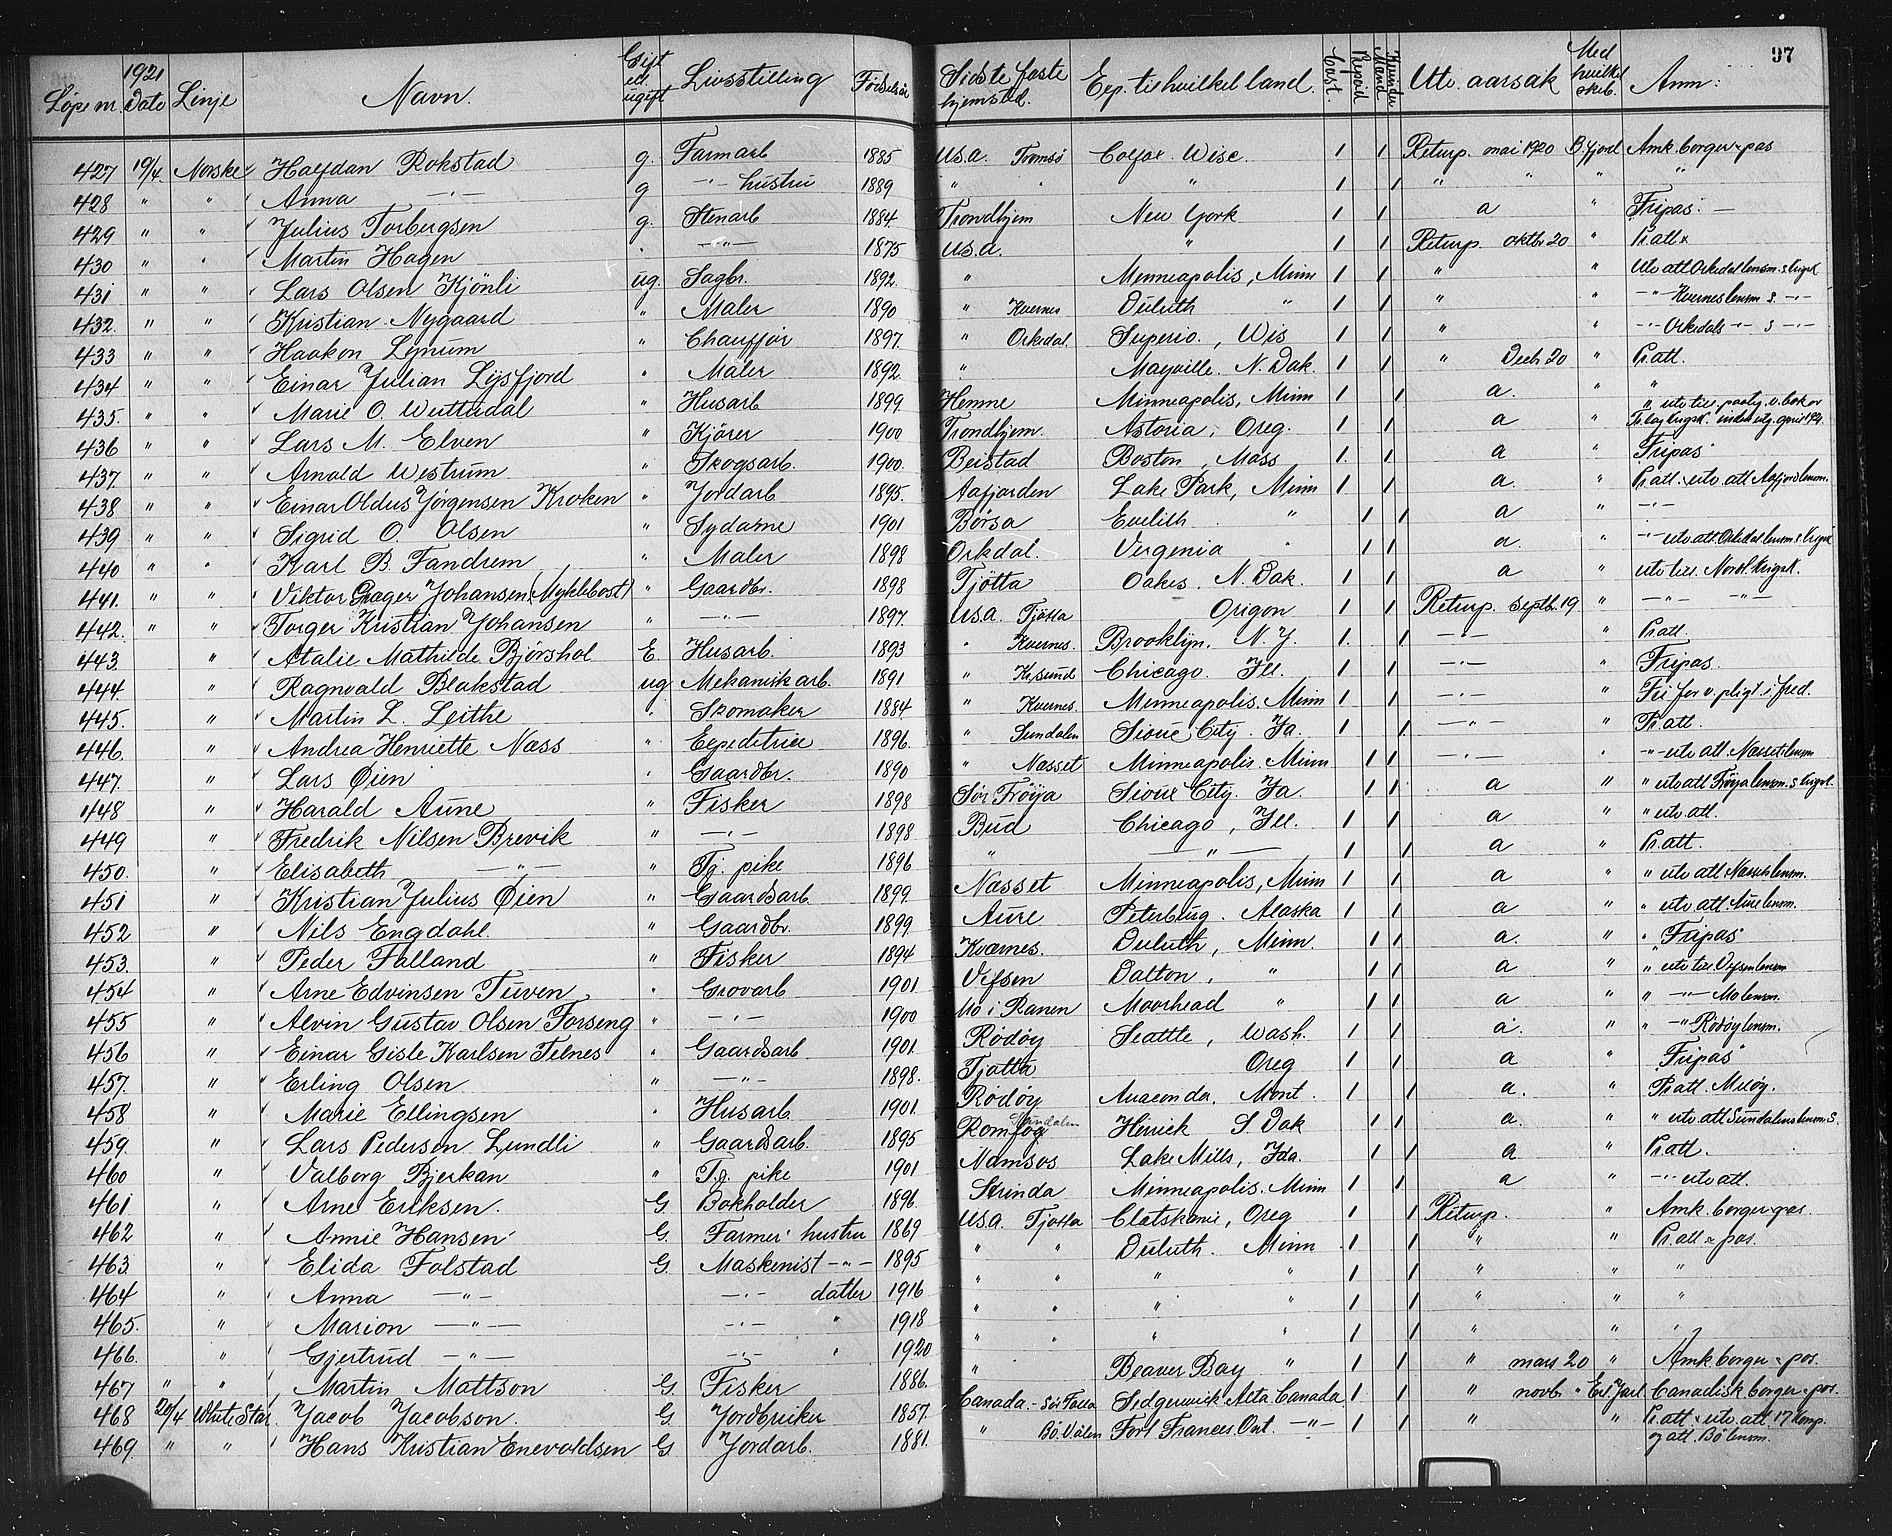 97
1921
Løpe nr. Date Linje Navn. Gift ell. ugift Livsstilling Fødselsår Sidste faste hjemsted. Exp. til hvilket land. Kvinder Mænd Utv. aarsak Med hvilket skib. Anm:
427 19/4. Norske Halfdan Rokstad g. Farmarb 1885 U.S.a. Tromsø Colfax. Wisc. 1 1 Returp. mai 1920 B.fjord Amk. borger-pas
428 " " Anna —"— g —"— hustru 1889 " " " 1 1 " " " "
429 " " Julius Torbergsen g. Stenarb 1884. Trondhjem New York 1 1 a " Fripas. —
430 " " Martin Hagen " —"— 1875 U.S.a. " 1 1 Returp. oktbr 20 " Pr. att.
431 " " Lars Olsen Kjönli ug. Sagbr. 1892. " Minneapolis, Minn 1 1 " " Utv att Orkedal lensm. s krigsk
432. " " Kristian Nygaard " Maler 1890 " Kvernes Duluth " 1 1 " " —"— Kvernes lensm s. —"—
433 " " Haakon Lynum " Chauffør 1897. " Orkedal. Superio., Wis 1 1 " " —"— Orkedals —"— s —"—
434 " " Einar Julian Lysfjord " Maler 1892. " Mayville. N. Dak. 1 1 " Decb. 20 " Pr. att.
435. " " Marie O. Wuttudal " Husarb 1899. Hemne Minneapolis, Minn 1 1 a. " "
436 " " Lars M. Elven " Kjører 1900 Trondhjem. Astoria, Oreg. 1 1 a "
437. " " Arnold Westrum " Skogsarb. 1900. Beistad Boston, Mass 1. 1 a " Fripas
438 " " Einar Oldus Jørgensen Kroken " Jordarb 1895. Aafjorden Lake Park, Minn 1 1 a. " Pr. att. utv att Aafjord lensm.
439 " " Sigrid O. Olsen " Sydame 1901 Börsa Evelith " 1 1 a " —"—
440 " " Karl B. Fandrem " Maler 1898 Orkdal. Vergenia " 1 1 a. " —"— utv. att. Orkedal lensm. s krigsk
441. " " Viktor Grager Johansen (Myklebost) " Gaardbr. 1898 Tjötta Oakes, N. Dak. 1 1 a " utv till Nordl. krigsk.
442. " " Torger Kristian Johansen " —"— 1897. U.S.a. Tjötta Origon 1 1 Returp. Septb. 19 " —"— —"—
443. " Atalie Mathilde Björshol E. Husarb. 1893 " Kvernes. Brooklyn, N.Y. 1. 1 —"— " Pr. att.
444. " Ragnvald Blakstad ug Mekanisk arb. 1891 " Kr.sund Chicago. Ill. 1 1 —"— " Fripas.
445. " Martin L. Leithe " Skomaker 1884 " Kvernes. Minneapolis. Minn 1 1 —"— " Fri for v. pligt i fred.
446. " Andrea Henriette Næss " Expeditrice 1896. " Sundalen Sioux City. Ia. 1 1 —"— " Pr. att.
447. " Lars Øien " Gaardbr. 1890 " Næsset Minneapolis. Minn 1 1 —"— " —"— utv att Næsset lensm
448 " Harald Aune " Fisker 1898 Sör Fröya Sioux City. Ia. 1 1 a " " utv att Fröya lensm. s krigsk.
449 " Fredrik Nilsen Brevik " —"— 1898 Bud Chicago, Ill. 1 1 a " " utv att.
450. " Elisabeth —"— " Tj. pike 1896 " —"— 1 1 a " Pr. att.
451 " Kristian Julius Øien " Gaardsarb. 1899. Næsset Minneapolis, Minn 1 1 a " " utv att Næsset lensm.
452 " Nils Engdahl. " Gaardbr. 1899. Aure Peterburg. Alaska 1 1 a " " utv att. Aure lensm.
453. " Peder Falland " Fisker 1894 Kværnes. Duluth, Minn. 1 1 a. " " Fripas
454 " Arne Edvinsen Tuven " Grovarb 1901 Vefsen Dalton, " 1 1 a " " utv till Vefsen lensm
455 " Alvin Gustav Olsen Forseng " —"— 1900 Mo i Ranen Moorhead " 1 1 a " " —"— Mo lensm.
456 " Einar Gisle Karlsen Telnes " Gaardsarb 1901. Rödöy Seattle, Wash. 1 1 a. " " —"— Rödöy lensm.
457. " Erling Olsen " —"— 1898. Tjøtta Oreg 1 1 a " Fripas
458 " Marie Ellingsen " Husarb. 1901. Rödöy Anaconda, Mont. 1 1 a. " Pr. att. Meløy.
459. " Lars Pedersen Lundli " Gaardsarb. 1895 Sundalen Herrick S. Dak 1 1 a. " " utv att Sundalens lensm. s.
460 " Valborg Bjerkan " Tj. pike 1901 Namsos Lake Mills, Ida. 1 1 a " Pr. att.
461 " Arne Eriksen. G. Bokholder 1896. Strinda Minneapolis. Minn 1 1 a " —"— utv att.
462 " Annie Hansen G. Farmer hustru 1869 U.S.a. Tjøtta Clatskanie, Oreg 1 1 Returp. " Amk. borger-pas.
463. " Elida Folstad G. Maskinist —"— 1895 " " Duluth. Minn 1 1 " " Pr. att - pas.
464 " Anna —"— —"— datter 1916 " " " " 1 1 " " "
465. " Marion —"— —"— " 1918 " " " " 1 1 " " "
466. " Gjertrud —"— —"— " 1920 " " " " 1 1 " " "
467 " " Martin Mattson G. Fisker 1886. " Beaver Bay " 1 1 " mars 20 " Amk borger-pas.
468 20/4 White Star Jacob Jacobson. G. Jordbruker 1857. Canada - Sedgerwick Alta Canada 1 1 " novb. " Erl. Jarl Canadisk borger-pas.
469. " " Hans Kristian Enevoldsen G. Jordarb. 1881. " Bö. V.ålen Fort Frances Ont. —"— 1 1 " " Pr. att. utv. att. 17 Komp.
og att. Bö lensm.